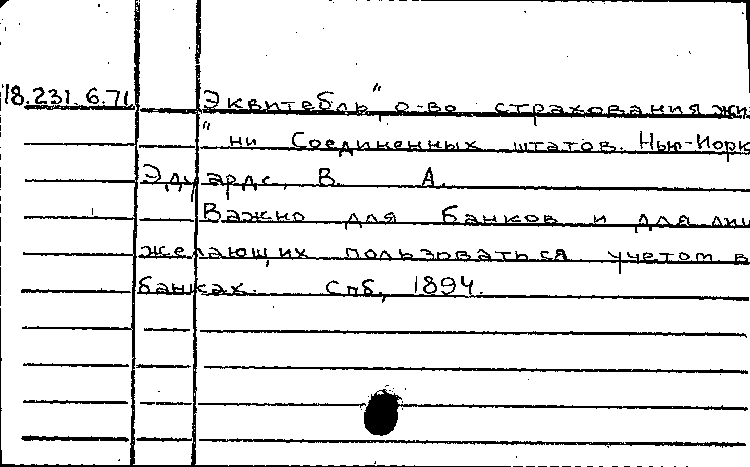 18.231.6.71 "Эквитебль" о-во страхования жиз
ни Соединенных штатов. Нью-Йорк
Эдуардс, В. А.
Важно для банков и для лиц
желающих пользоваться учетом в
банках. Спб, 1894.